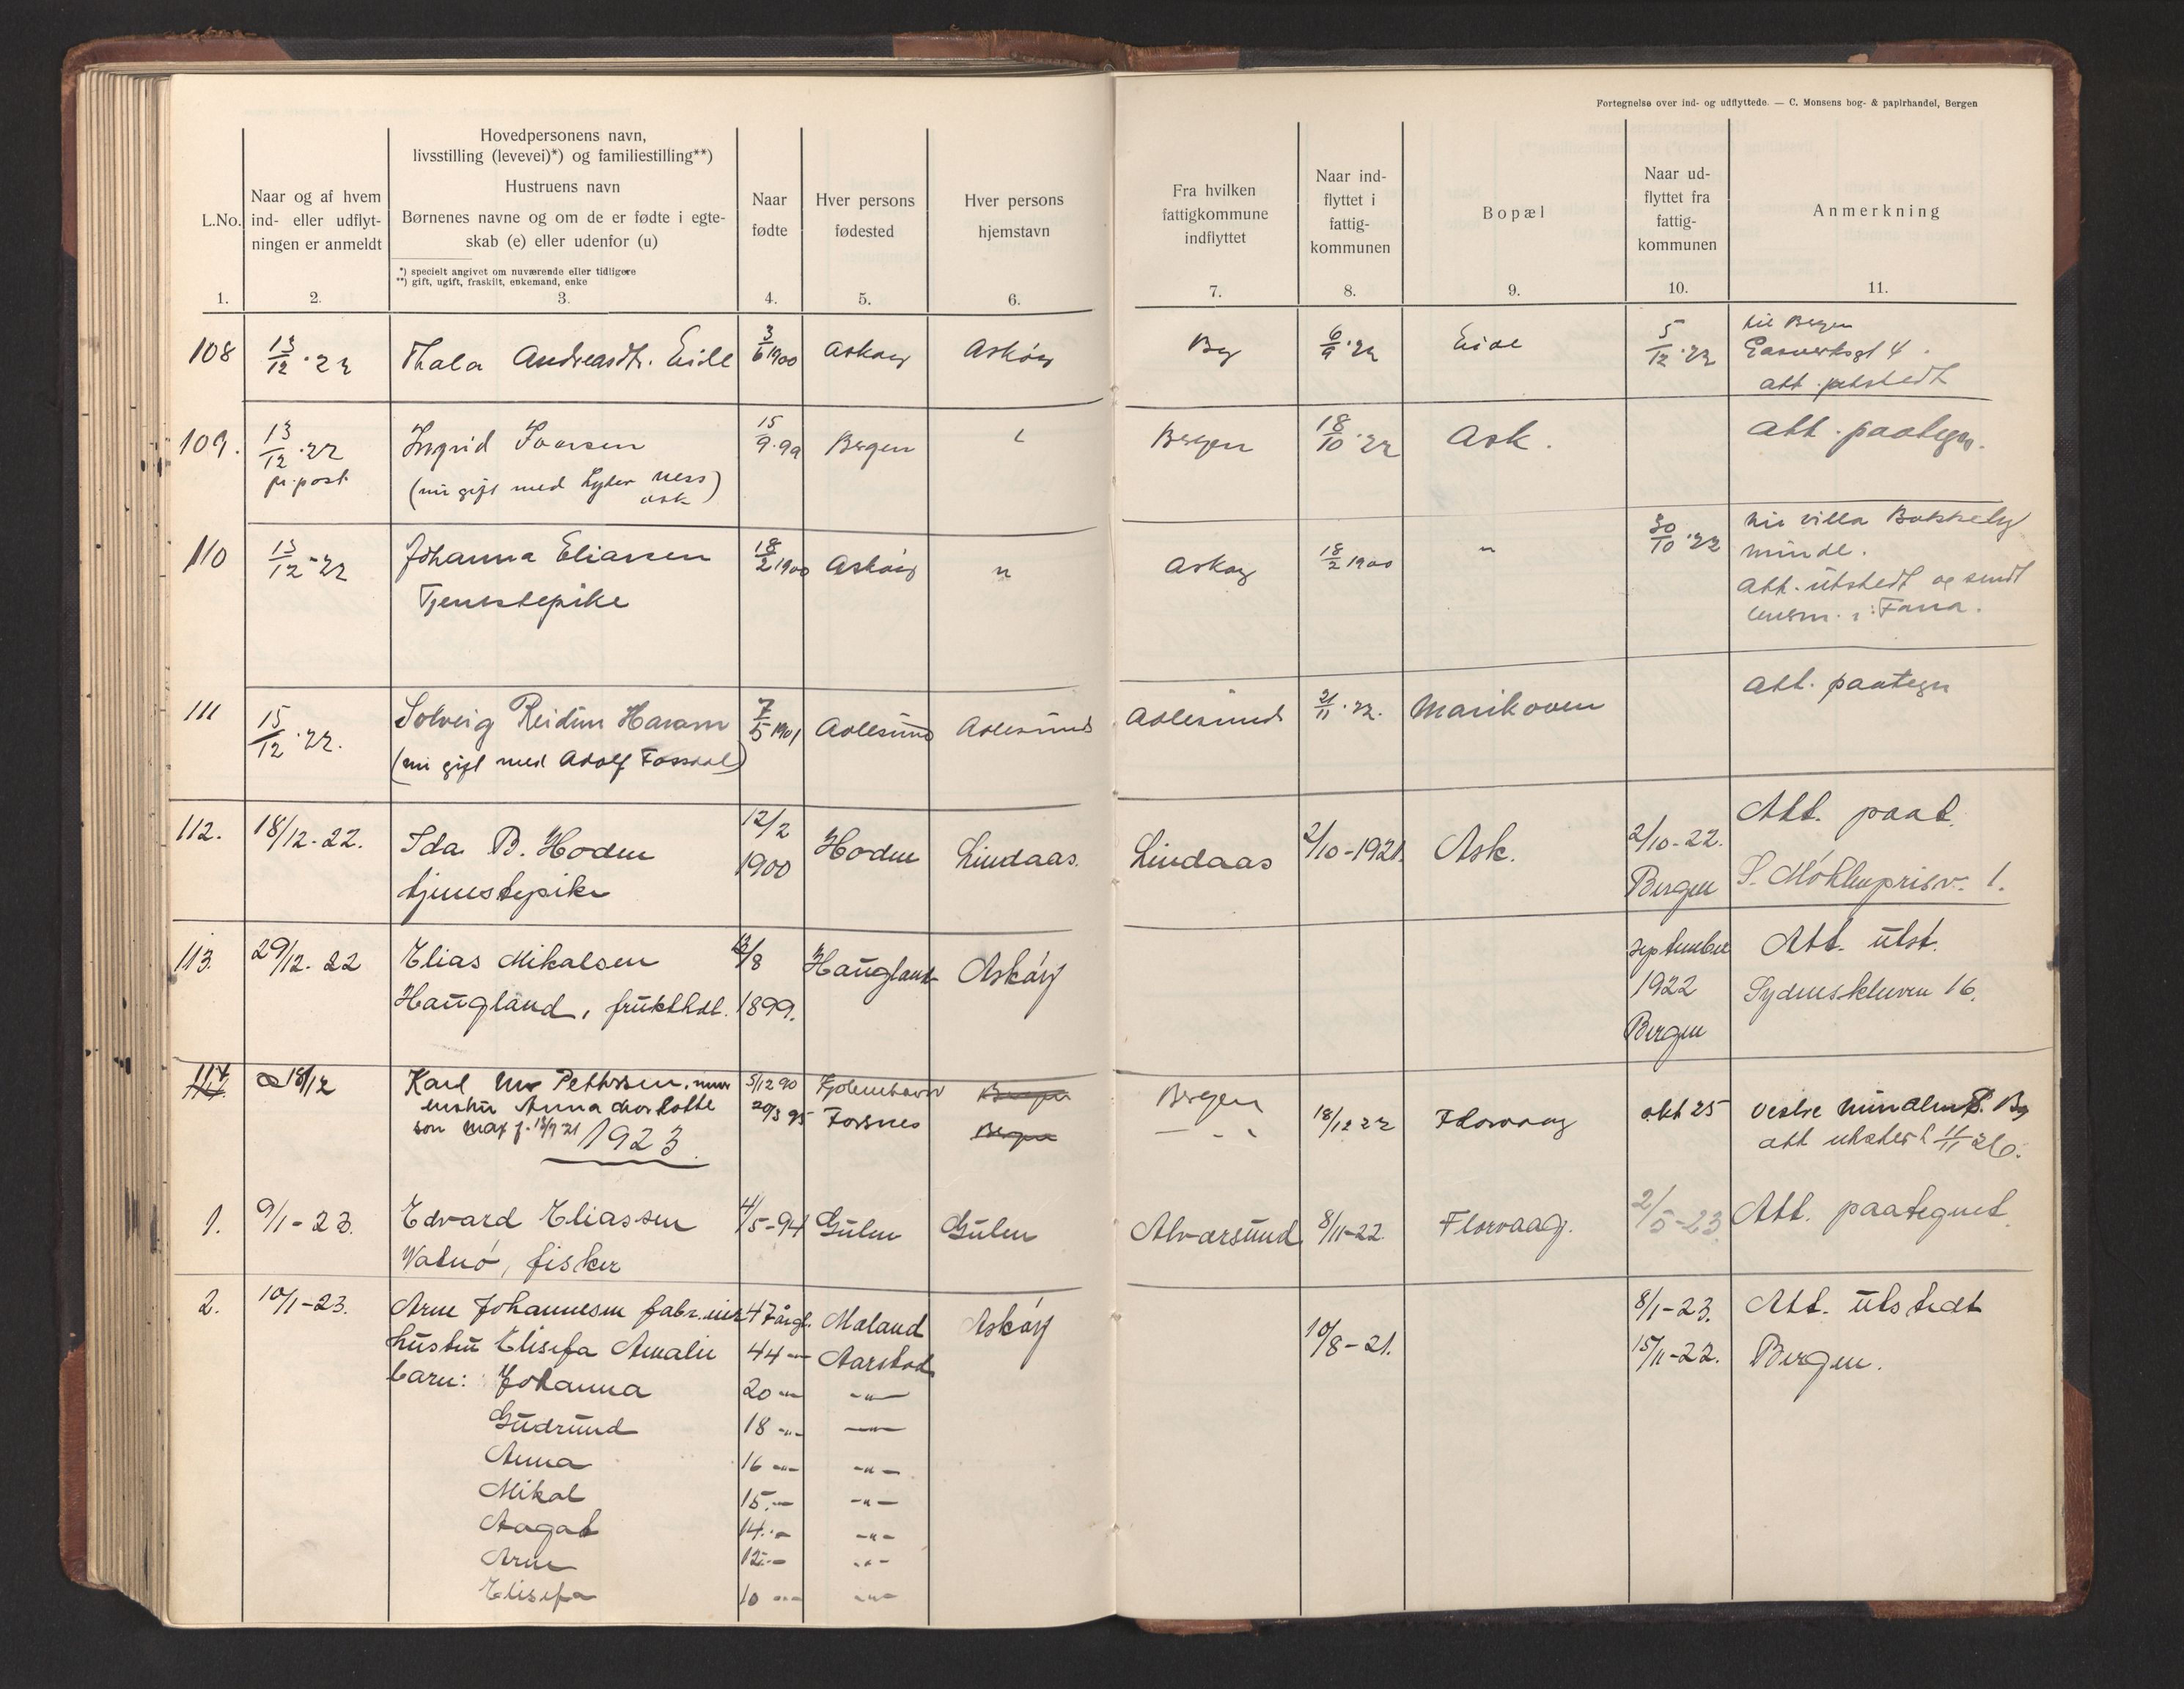 Fortegnelse over ind- og udflyttede. — C. Monsens bog- & papirhandel, Bergen
L.No.
1.
Naar og af hvem
ind- eller udflyt-
ningen er anmeldt
2.
Hovedpersonens navn,
livsstilling (levevei)*) og familiestilling**)
Hustruens navn
Børnenes navne og om de er fødte i egte-
skab (e) eller udenfor (u)
*) specielt angivet om nuværende eller tidligere
**) gift, ugift, fraskilt, enkemand, enke
3.
Naar
fødte
4.
Hver persons
fødested
5.
Hver persons
hjemstavn
6.
Fra hvilken
fattigkommune
indflyttet
7.
Naar ind-
flyttet i
fattig-
kommunen
8.
Bopæl
9.
Naar ud-
flyttet fra
fattig-
kommunen
10.
Anmerkning
11.
108 13/12·22 Thala Andreasdtr. Eide 3/6 1900 Askøy Askøy Bg 6/9·22 Eide 5/12·22 til Bergen
4
att.
109. 13/12·22 Ingrid 15/9·99 Bergen Bergen 18/10·22 Ask. att. paategn.
pr. post (nu gift med Ness
Ask)
110 13/12-22 Johanna Eliassen 18/2 1900 Askøy " Askøy 18/2 1900 " 30/10·22 villa
Tjenestepike minde.
att. utstedt og sendt
lensm. i Fana.
111 15/12·22. Solveig Reidun Haram 7/5 1901 Aalesund Aalesund Aalesund 2/11·22. Marikoven att. paategn
(nu gift med Adolf Fossdal)
112. 18/12-22. Ida B. Hodne 12/2 Hodne Lindaas. Lindaas 2/10-1921. Ask. 2/10-22. Att. paat.
tjenestepike 1900 Bergen S. Møhlenprisv. 1.
113. 29/12-22 Elias Mikalsen 12/8 Haugland Askøy september Att. utst.
Haugland, frukthdl. 1899. 1922 Sydneskleven 16.
Bergen
114. 18/12 Karl Pettersen, 5/12 90 Bergen Bergen 18/12 22 Florvaag okt 25 vestre Bg
hustru Anna Charlotte 20/3 95 Forsnes Bergen att utstedt 11/11 26.
son Max f. 13/9 21
1923.
1. 9/1-23. Edvard Eliassen 4/5-94 Gulen Gulen Alversund 8/11-22. Florvaag. 2/5-23 Att. paategnet
Vatnø, fisker
2. 10/1-23. Arne Johannesen fabr.eier 47 aargl. Moland Askøy 10/8-21. 8/1-23. Att. utstedt
hustru Elisefa Amalie 44 —"— Aarstad 15/11-22. Bergen.
barn: Johanna 20 —"— —"—
Gudrund 18 —"— —"—
Anna 16 —"— —"—
Mikal 15 —"— —"—
Aagat 14 —"— —"—
Arne 12 —"— —"—
Elisefa 10 —"— —"—